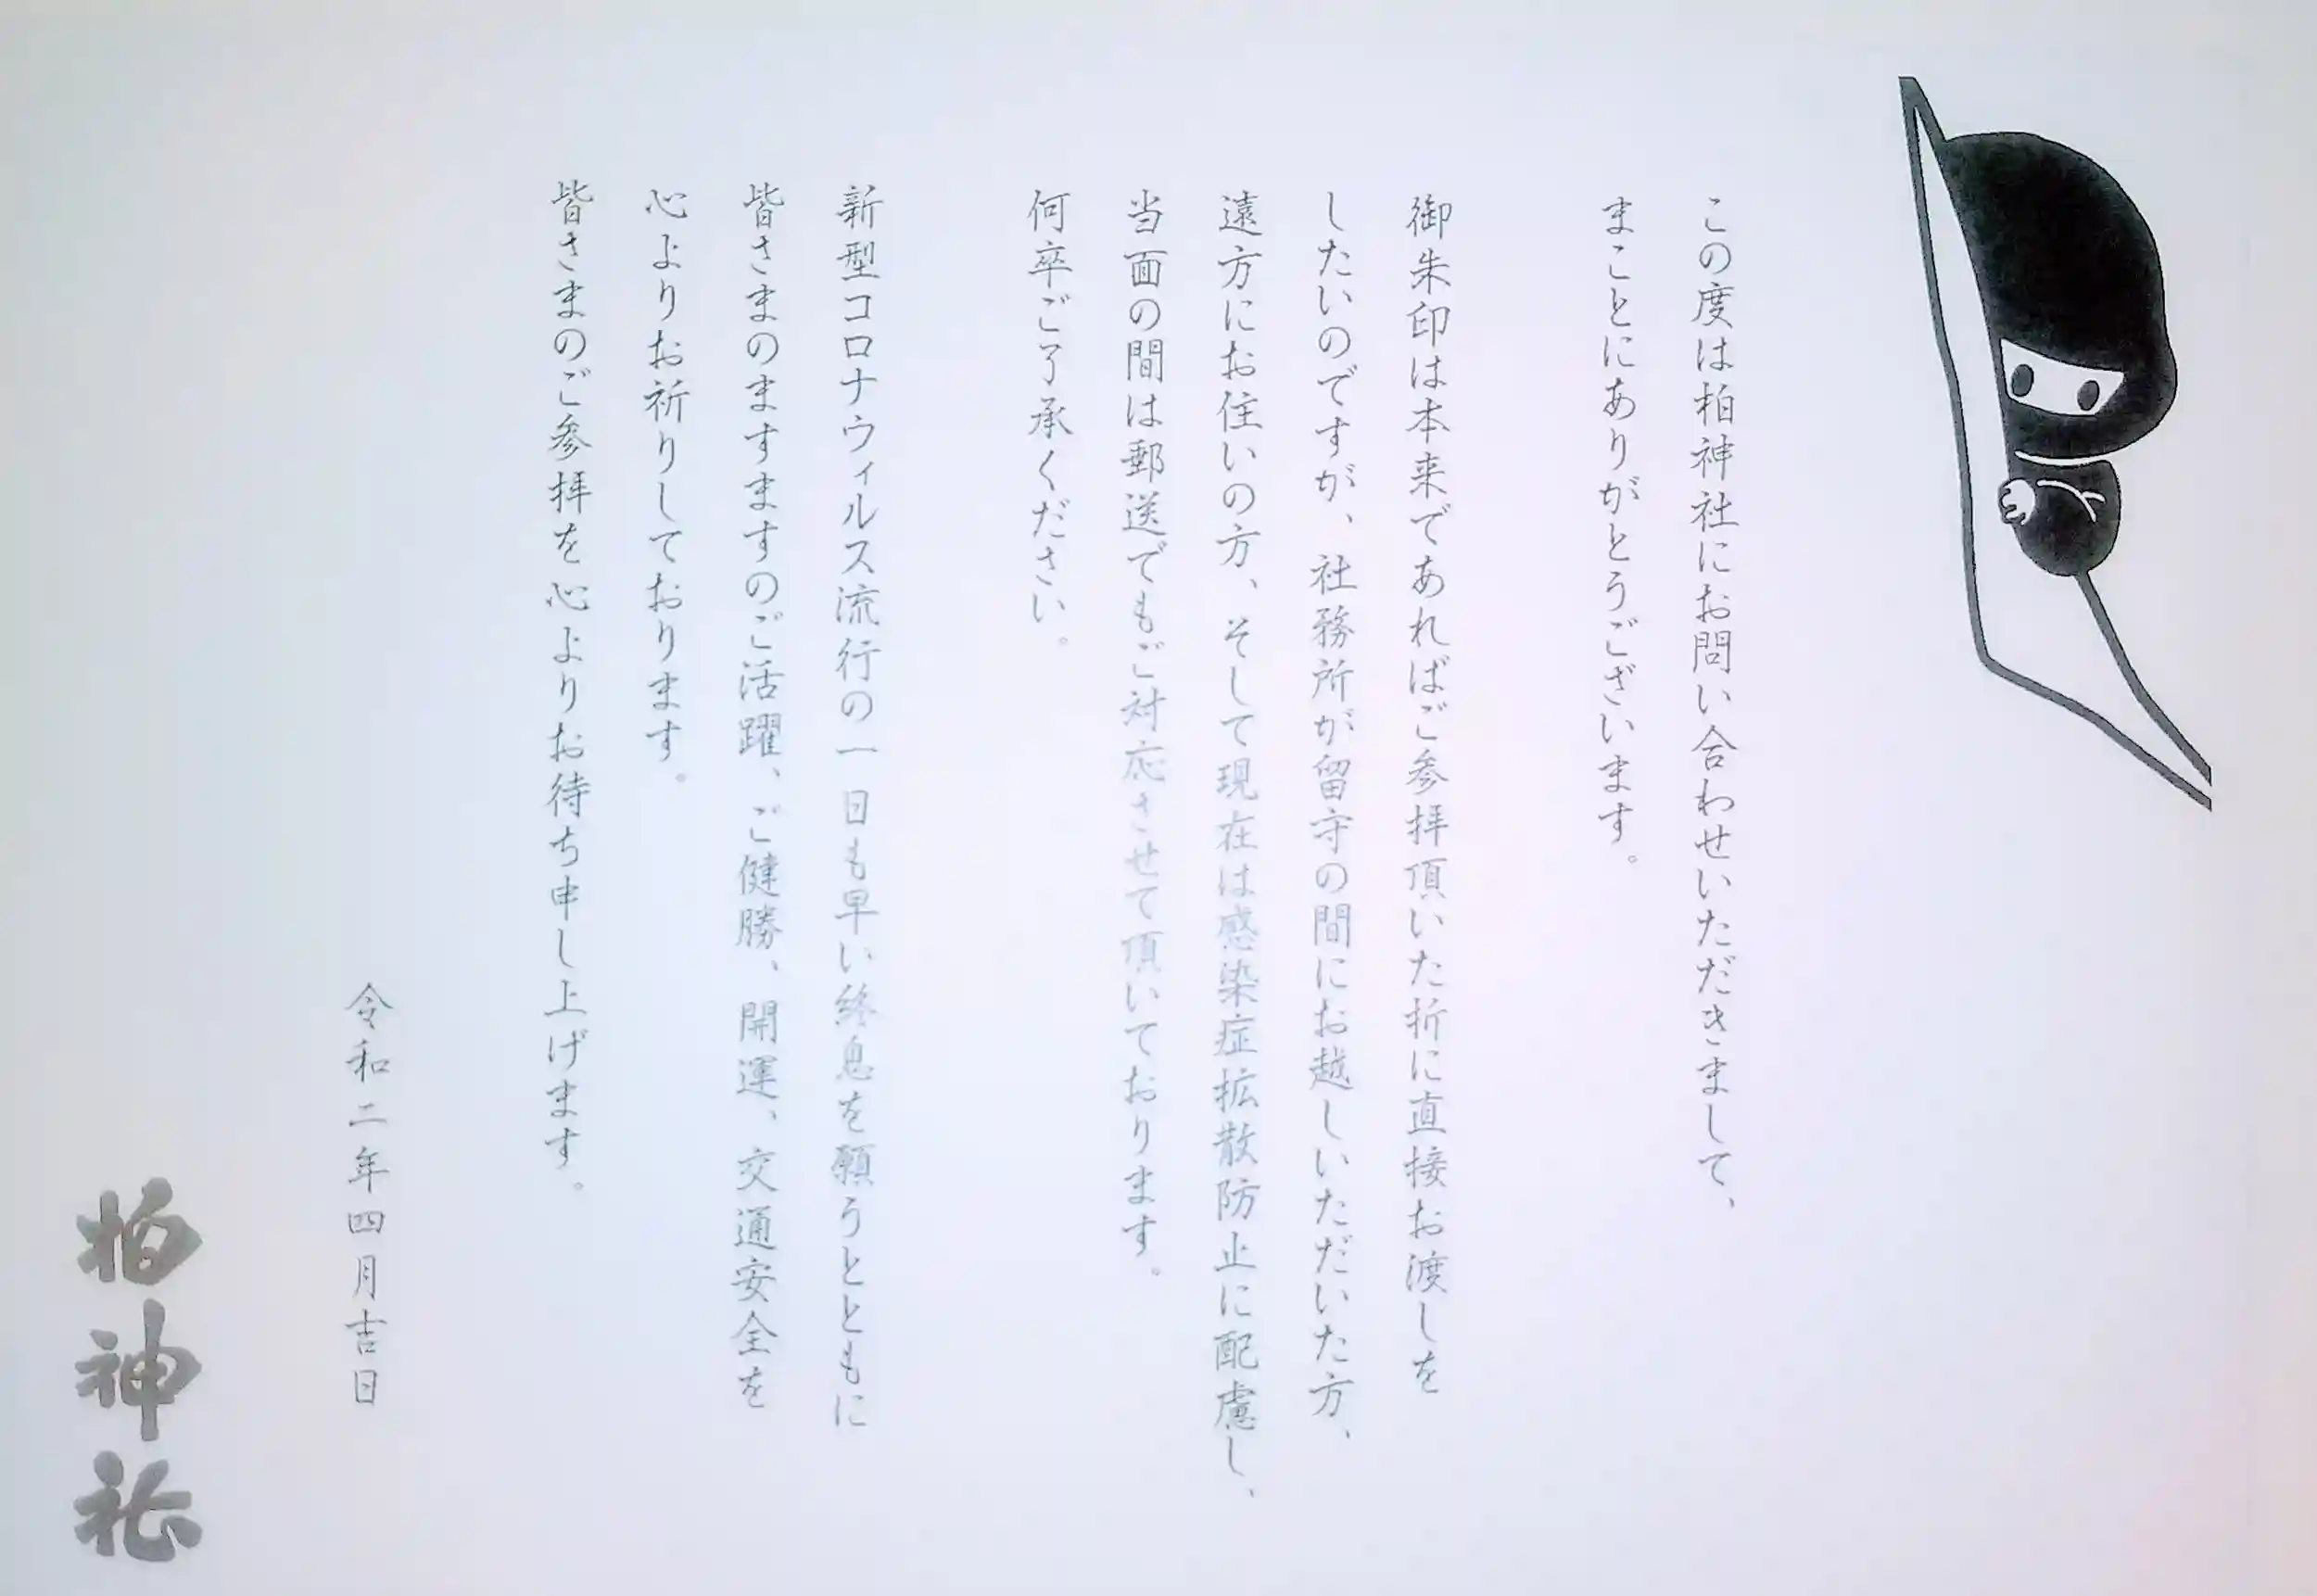 この度は柏神社にお問い合わせいただきまして、
まことにありがとうございます。
御朱印は本来であればご参拝頂いた折に直接お渡しを
したいのですが、社務所が留守の間にお越しいただいた方、
遠方にお住いの方、そして現在は感染症拡散防止に配慮し、
当面の間は郵送でもご対応させて頂いております。
何卒ご了承ください。
新型コロナウィルス流行の一日も早い終息を願うとともに
皆さまのますますのご活躍、ご健勝、開運、交通安全を
心よりお祈りしております。
皆さまのご参拝を心よりお待ち申し上げます。
令和二年四月吉日
柏神社